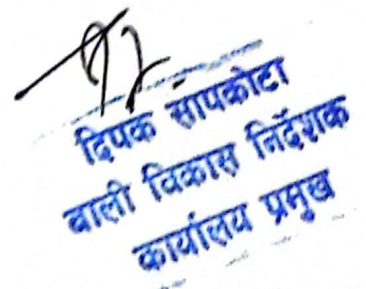 दिपक सापकोटा
बाली विकास निर्देशक
कार्यालय प्रमुख